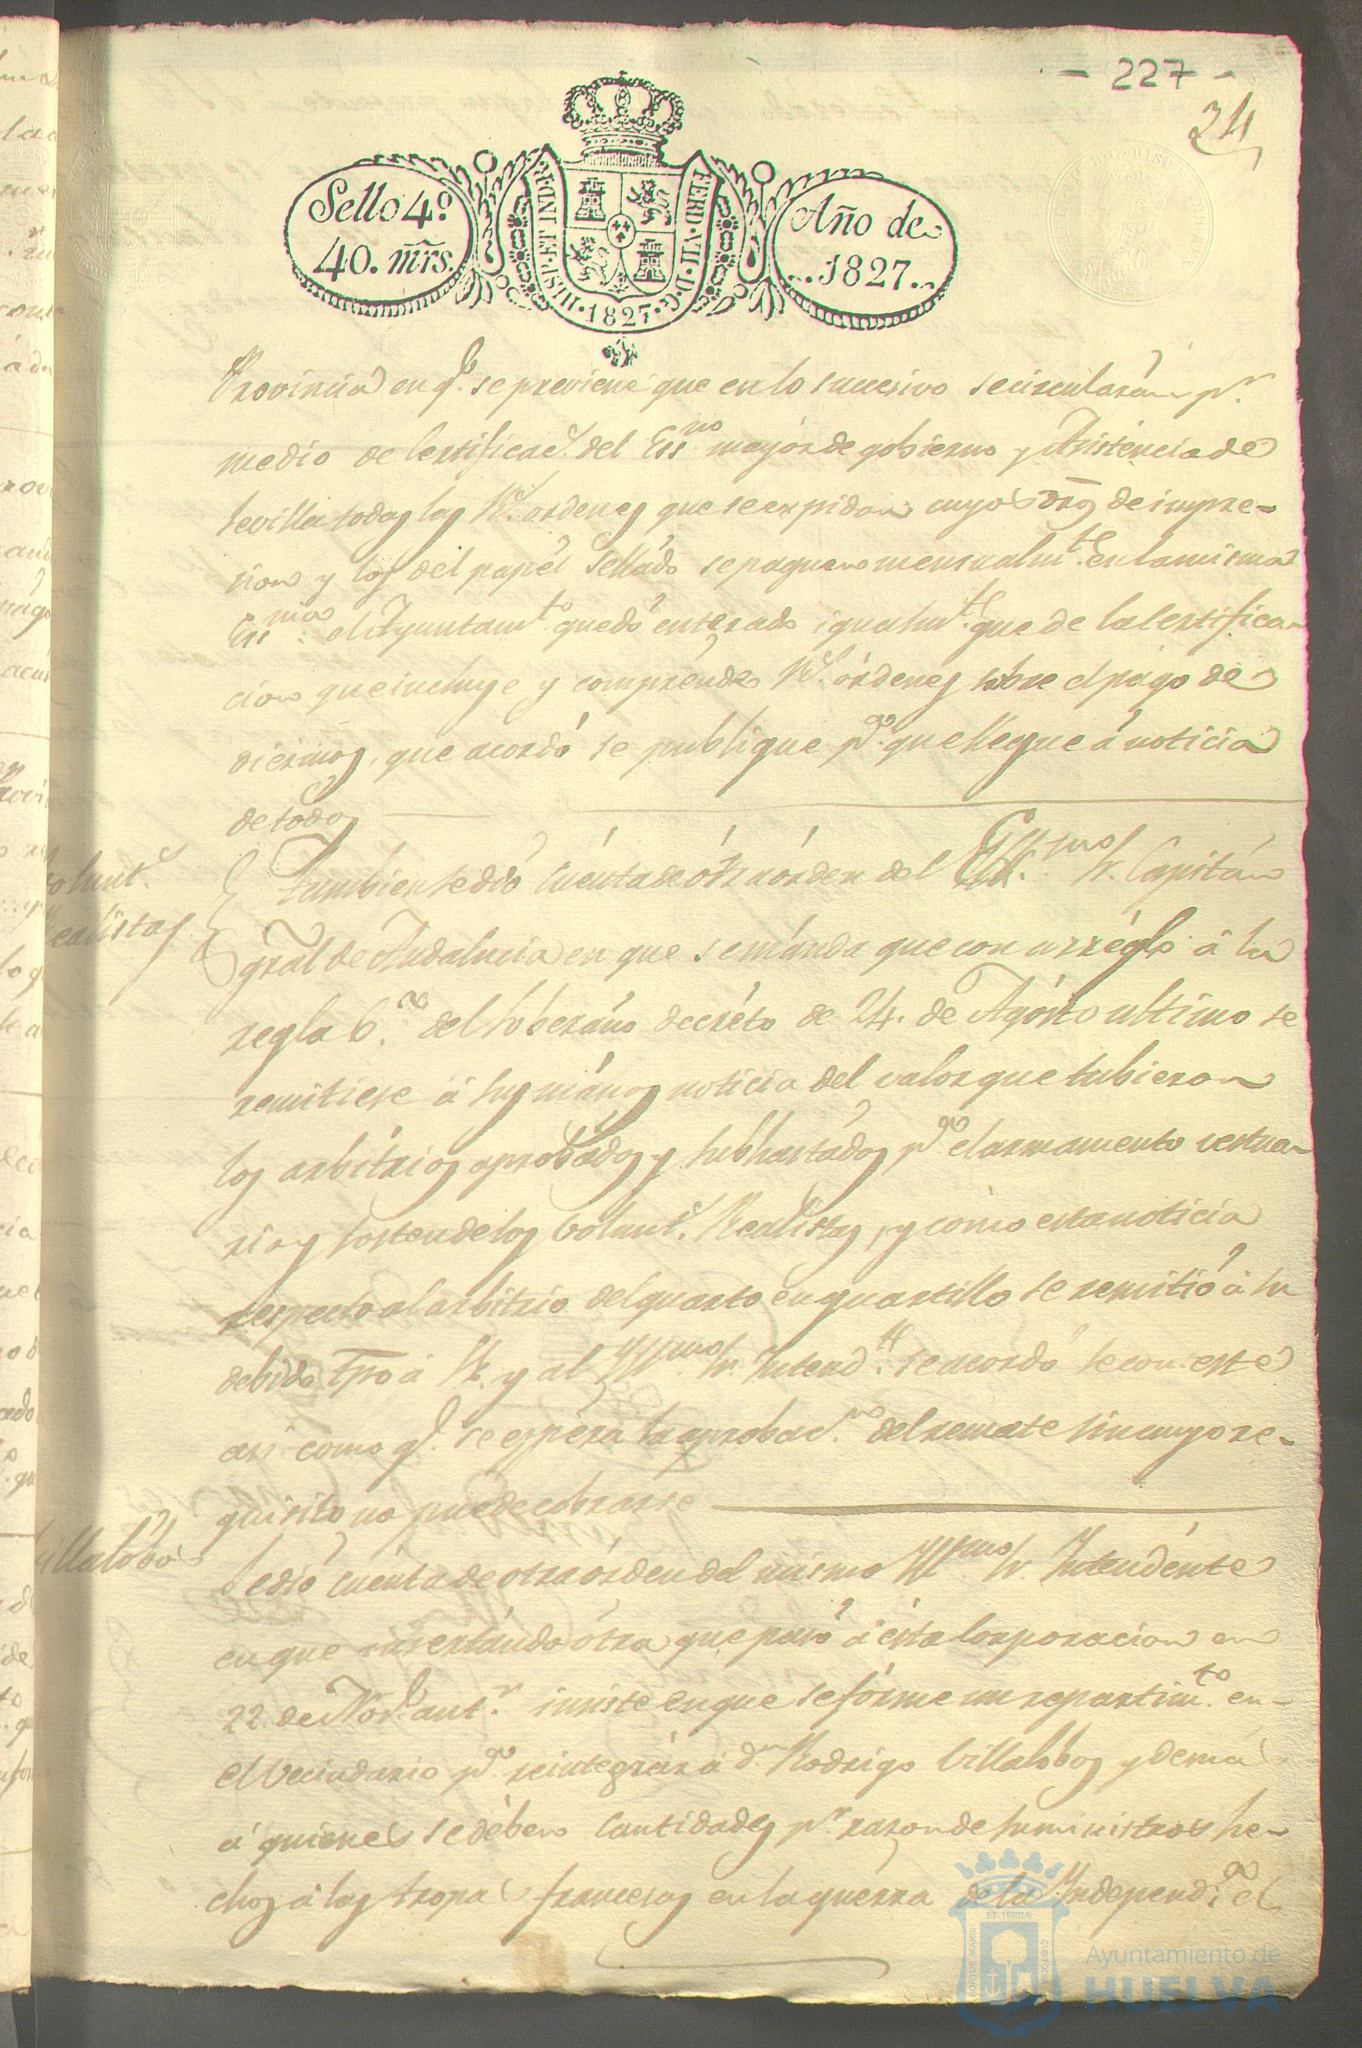 - 227 -
24
Sello 4º
40. mrs.
HISP. ET IND. R.
FERD. VII. D. G.
1827
Año de
1827
Provincia en qe. se previene que en lo sucesivo se circularán pr.
medio de Certificacn. del Essno mayor de gobierno y Asistencia de
Sevilla todas las Rs. ordenes que se expidan cuyos dros de impre-
sion y los del papel Sellado se paguen mensualmte. en la misma
Essma: el Ayuntamto. quedó enterado igualmte. que de la Certifica-
cion que incluye y comprende Rs. órdenes sobre el pago de
diezmos, que acordó se publique pa. que llegue á noticia
de todos
Volunts.
Realistas
Tambien se dió cuenta de otra órden del Essmo Sr. Capitán
gral de Andalucia en que se manda que con arréglo á la
regla 6.a del Soberano decréto de 24. de Agosto ultimo se
remitiese á sus manos noticia del valor que tubieron
los arbitrios aprobados y subhastados pa. el armamento vestua-
rio y sosten de los Volunts. Realistas, y como esta noticia
respecto al arbitrio del quarto en quartillo se remitió á su
debido tpo á SE. y al Yllmo Sr. Intendte. se acordó se conteste
asi como qe. se espera la aprobacn. del remate sin cuyo re-
quisito no puede cobrarse
Villalobos
Se dió cuenta de otra órden del mismo Yllmo Sr. Intendénte
en que insertando ótra que pasó á ésta Corporacion en
22 de Nove. antr. insiste en que se fórme un repartimto. en-
el Vecindario pa. reintegrár á Dn. Rodrigo Villalobos y demás
á quienes se deben Cantidades pr. razon de suministros he-
chos á las tropas francesas en la guerra de la Independa. el
Ayuntamiento de
HUELVA